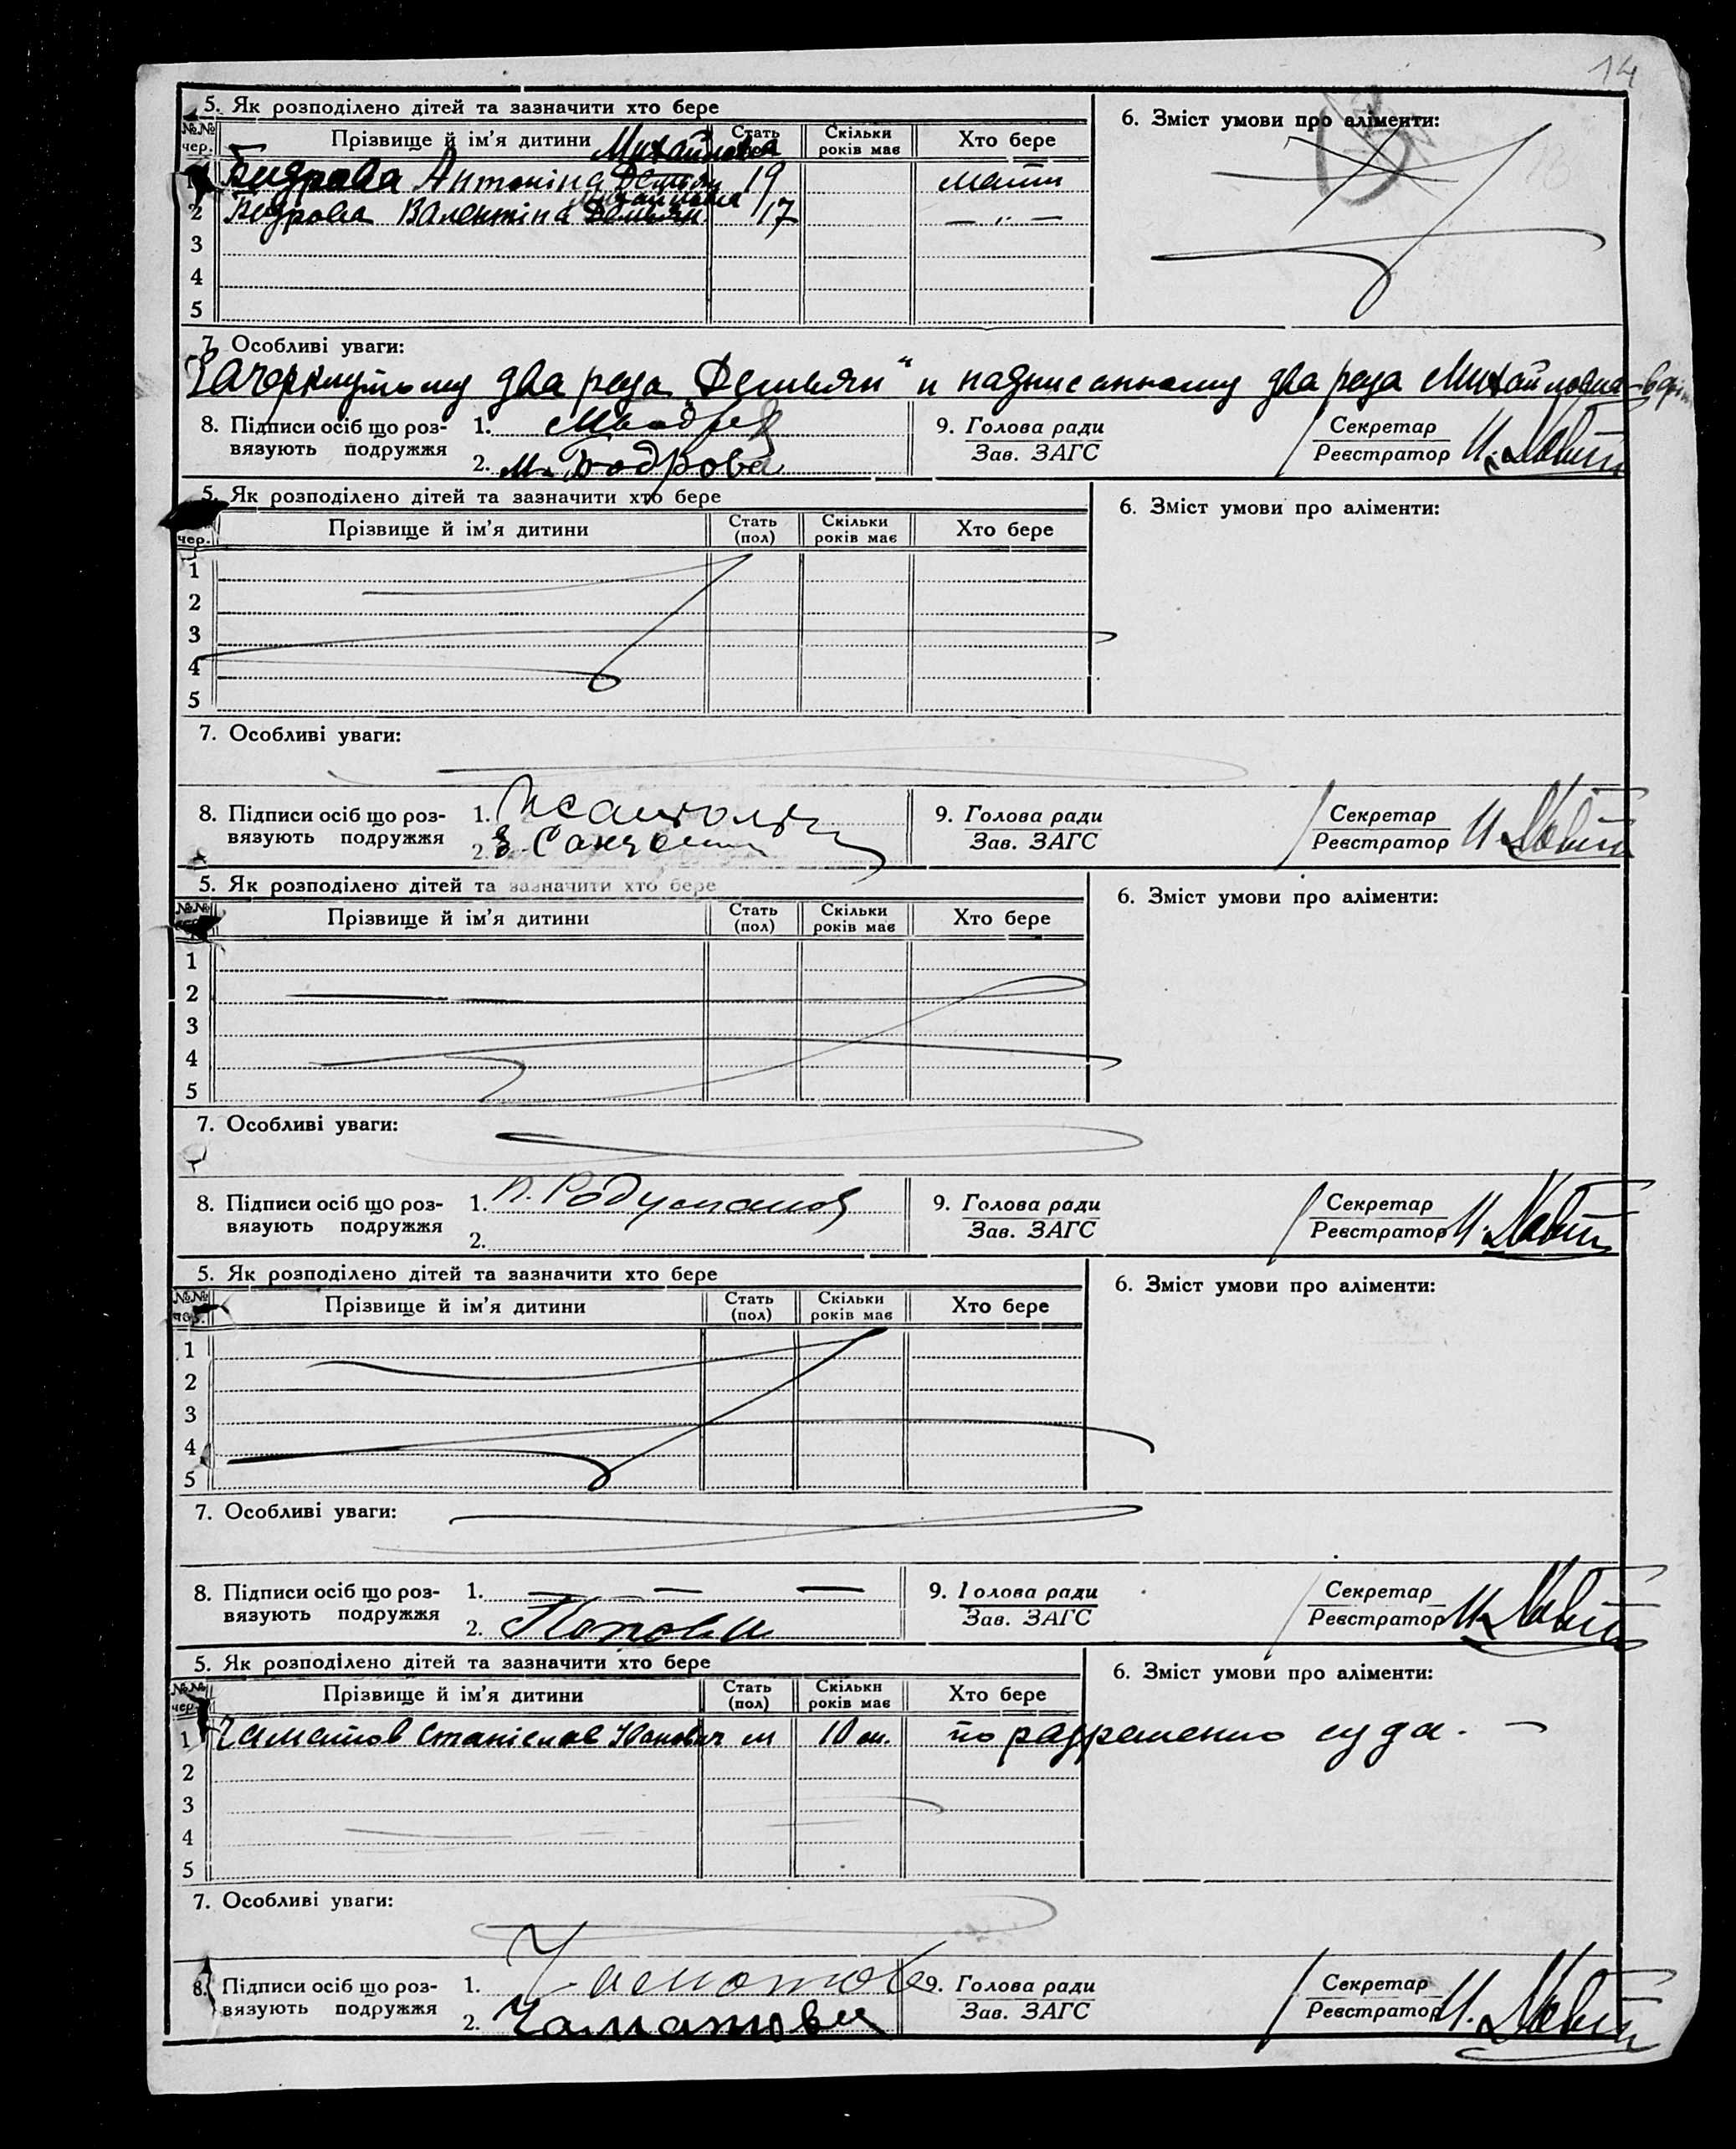 14
5. Як розподілено дітей та зазначити хто бере
6. Зміст умови про аліменти:
№№ чер. Прізвище й ім'я дитини Стать Скільки років має Хто бере
Михайловна
1 Бодрова Антоніна Демьян 19 мати
Михайловна
2 Бодрова Валентіна Демьян 17 — „ —
3
4
5
7. Особливі уваги:
Зачеркнутому два раза „Демьян“ и надписанному два раза Михайловна
8. Підписи осіб що роз-вязують подружжя 1.
2. М. Бодрова
9. Голова ради
Зав. ЗАГС
Секретар
Реєстратор
5. Як розподілено дітей та зазначити хто бере
6. Зміст умови про аліменти:
чер. Прізвище й ім'я дитини Стать (пол) Скільки років має Хто бере
1
2
3
4
5
7. Особливі уваги:
8. Підписи осіб що роз-вязують подружжя 1.
2.
9. Голова ради
Зав. ЗАГС
Секретар
Реєстратор
5. Як розподілено дітей та зазначити хто бере
6. Зміст умови про аліменти:
№№ Прізвище й ім'я дитини Стать (пол) Скільки років має Хто бере
1
2
3
4
5
7. Особливі уваги:
8. Підписи осіб що роз-вязують подружжя 1.
2.
9. Голова ради
Зав. ЗАГС
Секретар
Реєстратор
5. Як розподілено дітей та зазначити хто бере
6. Зміст умови про аліменти:
№№ чер. Прізвище й ім'я дитини Стать (пол) Скільки років має Хто бере
1
2
3
4
5
7. Особливі уваги:
8. Підписи осіб що роз-вязують подружжя 1. — — —
2. Попова
9. Голова ради
Зав. ЗАГС
Секретар
Реєстратор
5. Як розподілено дітей та зазначити хто бере
6. Зміст умови про аліменти:
№№ чер. Прізвище й ім'я дитини Стать (пол) Скільки років має Хто бере
1 Чаматов Станіслав Іванович м 10 м. по разрешению суда. —
2
3
4
5
7. Особливі уваги:
8. Підписи осіб що роз-вязують подружжя 1. Чаматов
2. Чаматова
9. Голова ради
Зав. ЗАГС
Секретар
Реєстратор